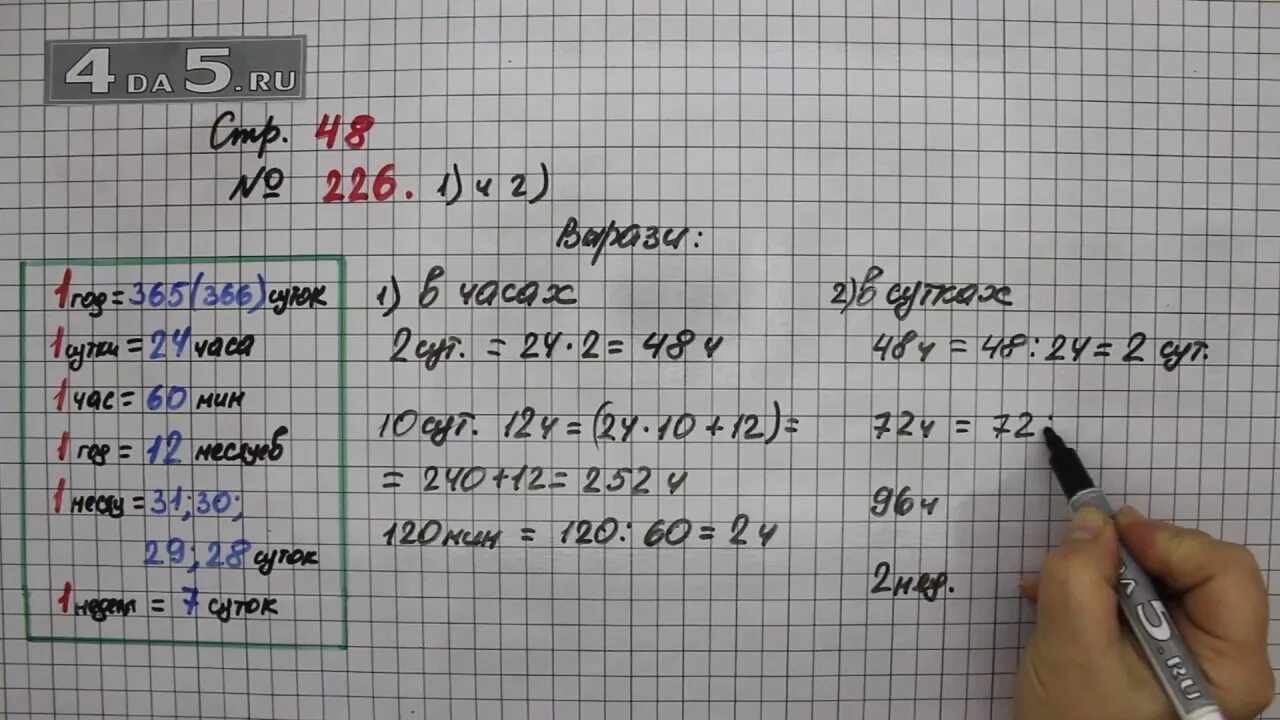 4DA5.RU
Стр. 48
№ 226. 1) и 2)
Вырази:
1 год = 365 (366) суток
1 сутки = 24 часа
1 час = 60 мин
1 год = 12 месяцев
1 месяц = 31; 30;
29; 28 суток
1 неделя = 7 суток
1) в часах
2 сут. = 24 · 2 = 48 ч
10 сут. 12 ч = (24 · 10 + 12) =
= 240 + 12 = 252 ч
120 мин = 120 : 60 = 2 ч
2) в сутках
48 ч = 48 : 24 = 2 сут.
72 ч = 72 :
96 ч
2 нед.
4DA5.RU